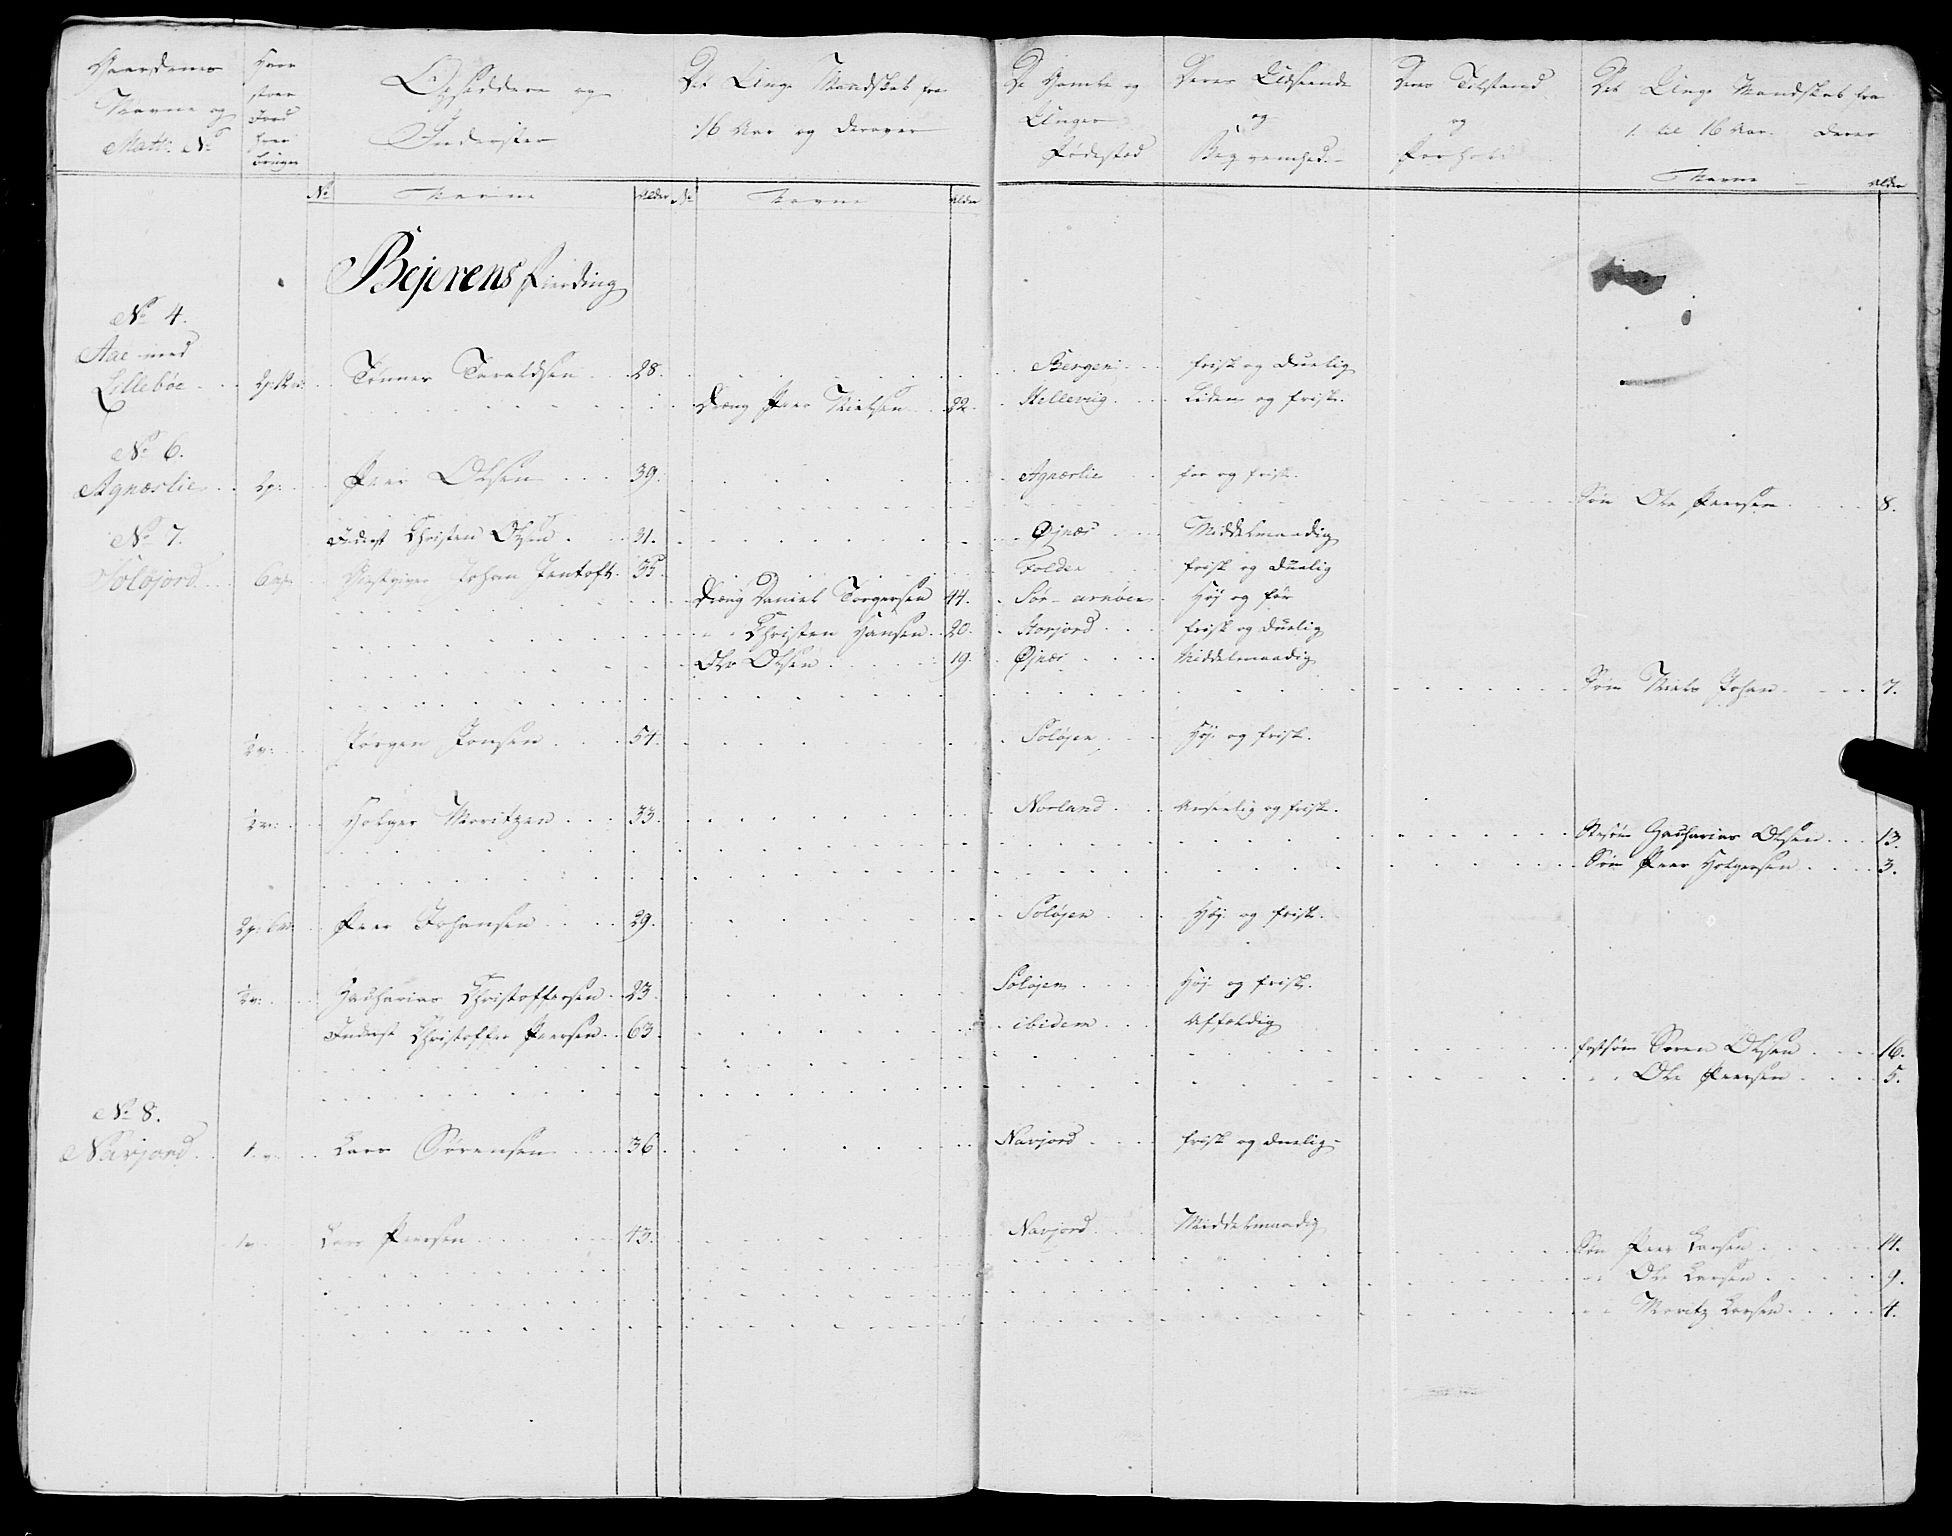 Gaardenes Navne og Matr: No
Hvor stor Jord hver bruger
Opsiddere og Inderster
Det Unge Mandskab fra 16 Aar og derover
De Gamle og Unges Fødested
Deres Udseende og Beqvemhed.
Deres Tilstand og Forhold
Det Unge Mandskab fra 1. til 16 Aar. Deres
No Navne Alder No Navne Alder Navne Alder
Bejerens Fierding
No 4.
Aae med
Lillebøe Tønnes Taraldsen 28. Bergen frisk og duelig
Dreng Peer Nielsen 22. Hellevug Liden og frisk.
No 6.
Agnæslie 2p: Peer Olsen 39. Agnæslie før og frisk.
Søn Ole Peersen 8.
No 7. Inderst Christen Olsen 31. Øjnæs Middelmaadig
Soløjord Johan Jentoft 35. Folden frisk og duelig
Dreng Daniel Torgersen 44. Sør-arnøen Høj og før
Christen Hansen 20. Storjord frisk og duelig
Ole Olsen 19. Øjnæs Middelmaadig
Søn Niels Johan 7.
1v: Jørgen Jonsen 54. Soløjen Høj og frisk.
1v: Holger Moritzen 33. Norland Anseelig og frisk.
Stifsøn Zacharias Olsen 13.
Søn Peer Holgersen 3.
Peer Johansen 29. Soløjen Høj og frisk.
1v: Zacharias Christoffersen 23. Soløjen Høj og frisk.
Inderst Christoffer Peersen 63. ibidem Affældig
fostsøn Søren Olsen 16.
Ole Peersen 5.
No 8.
Navjord 1v: Lars Sørensen 36 Navjord frisk og duelig
1v: Lars Peersen 43. Navjord Middelmaadig
Søn Peer Larsen 14.
Ole Larsen 9.
Moritz Larsen 4.